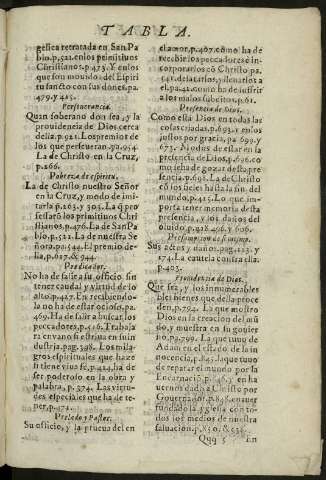 TABLA.
gelica retratada en San Pa
blo.p.521.en los primitiuos
Christianos.p.423. Y en los
que son mouidos del Espiri
tu sancto con sus dones.pa.
479.y 425.
Perseuerancia.
Quan soberano don sea, y la
prouidencia de Dios cerca
della.p.921. Los premios de
los que perseueran.pa.954.
La de Christo en la Cruz,
p.266.
Pobreza de espiritu.
La de Christo nuestro Señor
en la Cruz, y modo de imi-
tarla.p.263. y 505. La q̃ pro
fessarõ los primitiuos Chri
stianos.p.476. La de San Pa
blo, p.521. La de nuestra Se
ñora.pa.544. El premio de-
lla, p.617. & 944.
Predicador.
No ha de salir a su officio sin
tener caudal y virtud de lo
alto.p.427. En recibiendo-
la no ha de estar ocioso.pa.
469. Ha de salir a buscar los
peccadores, p.416. Trabaja
rà en vano si estriua en su in
dustria pag.398. Los mila-
gros espirituales que haze
si tiene viua fè, p.423, ha de
ser poderoso en la obra y
palabra, p.374. Las virtu-
des especiales que ha de te-
ner, p.471.
Prelado y Pastor.
Su officio, y la prueua del en
el amor, p.407. como ha de
recebir los peccadores e in-
corporarlos cõ Christo pa.
541. de la carlos, y llenarlos a
el.pa.41. como ha de sufrir
a los malos subditos, p.61.
Presencia de Dios.
Como està Dios en todas las
cosas criadas, p.693. y en los
justos por gracia, pa.699. y
673. Modos de estar en la
presencia de Dios, p.596. co
mo se ha de gozar desta pre-
sencia, p.698. La de Christo
cõ los fieles hasta la fin del
mundo, p.425. Lo que im-
porta tener memoria desta
presencia, y los daños del
oluido, p.418. 496. y 606.
Presumpcion de si mismo.
Sus actos y daños. pag.113. y
174. La cautela contra ella.
p.403.
Prouidencia de Dios.
Que sea, y los innumerables
bienes que della proce
den, p.794. La que mostro
Dios en la creacion del mu
do, y muestra en su gouier
no, pa.799. La que tuuo de
Adam en el estado de la in
nocencia, p.845. la que tuuo
de reparar el mundo por la
Encarnaciõ, p.846. y en ha
uernos dado a Christo por
Gouernador, p.898. en auer
fundado la yglesia con to-
dos los medios de nuestra
saluacion. p.850. & 636.
Qqq 5 En